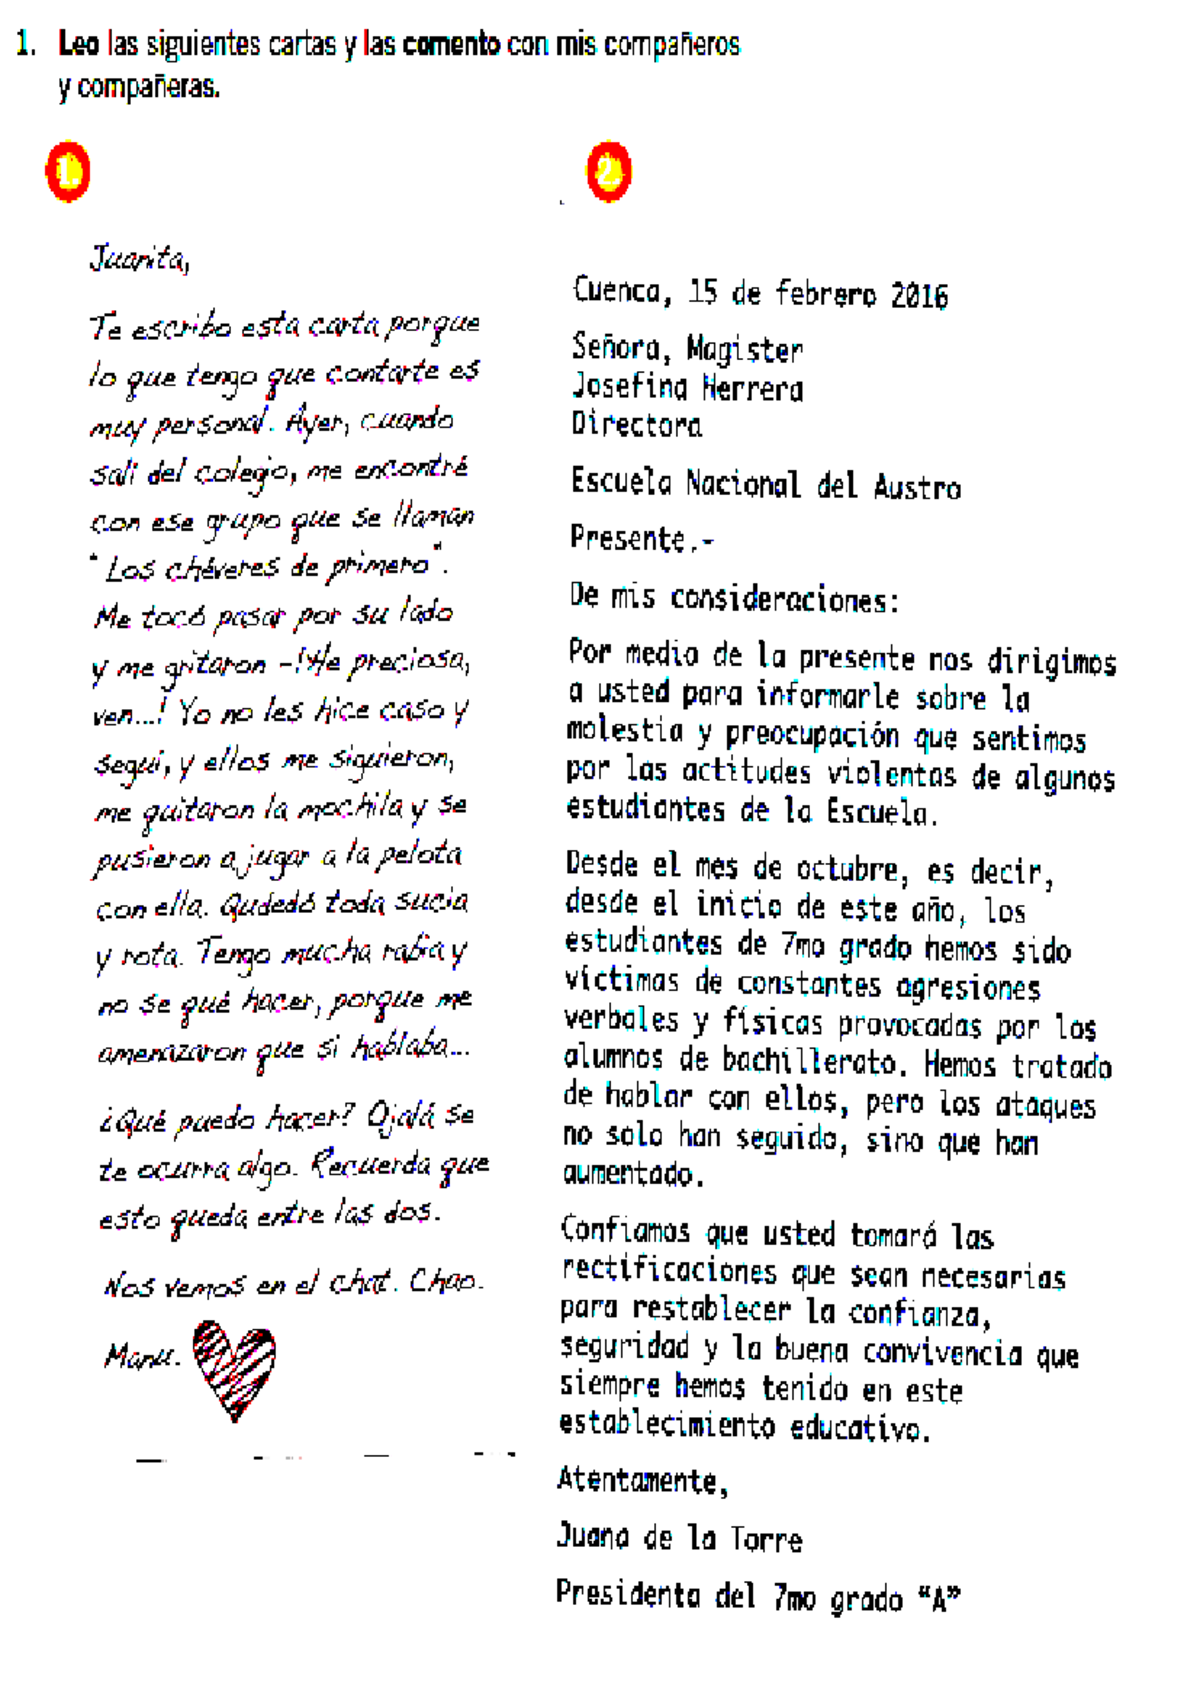 1. Leo las siguientes cartas y las comento con mis compañeros
y compañeras.
1.
Juanita,
Te escribo esta carta porque
lo que tengo que contarte es
muy personal. Ayer, cuando
salí del colegio, me encontré
con ese grupo que se llaman
"Los chéveres de primero".
Me tocó pasar por su lado
y me gritaron -!He preciosa,
ven...! Yo no les hice caso y
seguí, y ellos me siguieron,
me quitaron la mochila y se
pusieron a jugar a la pelota
con ella. Qudedó toda sucia
y rota. Tengo mucha rabia y
no se qué hacer, porque me
amenazaron que si hablaba...
¿Qué puedo hacer? Ojalá se
te ocurra algo. Recuerda que
esto queda entre las dos.
Nos vemos en el chat. Chao.
Manu.
2.
Cuenca, 15 de febrero 2016
Señora, Magister
Josefina Herrera
Directora
Escuela Nacional del Austro
Presente.-
De mis consideraciones:
Por medio de la presente nos dirigimos
a usted para informarle sobre la
molestia y preocupación que sentimos
por las actitudes violentas de algunos
estudiantes de la Escuela.
Desde el mes de octubre, es decir,
desde el inicio de este año, los
estudiantes de 7mo grado hemos sido
víctimas de constantes agresiones
verbales y físicas provocadas por los
alumnos de bachillerato. Hemos tratado
de hablar con ellos, pero los ataques
no solo han seguido, sino que han
aumentado.
Confiamos que usted tomará las
rectificaciones que sean necesarias
para restablecer la confianza,
seguridad y la buena convivencia que
siempre hemos tenido en este
establecimiento educativo.
Atentamente,
Juana de la Torre
Presidenta del 7mo grado “A”